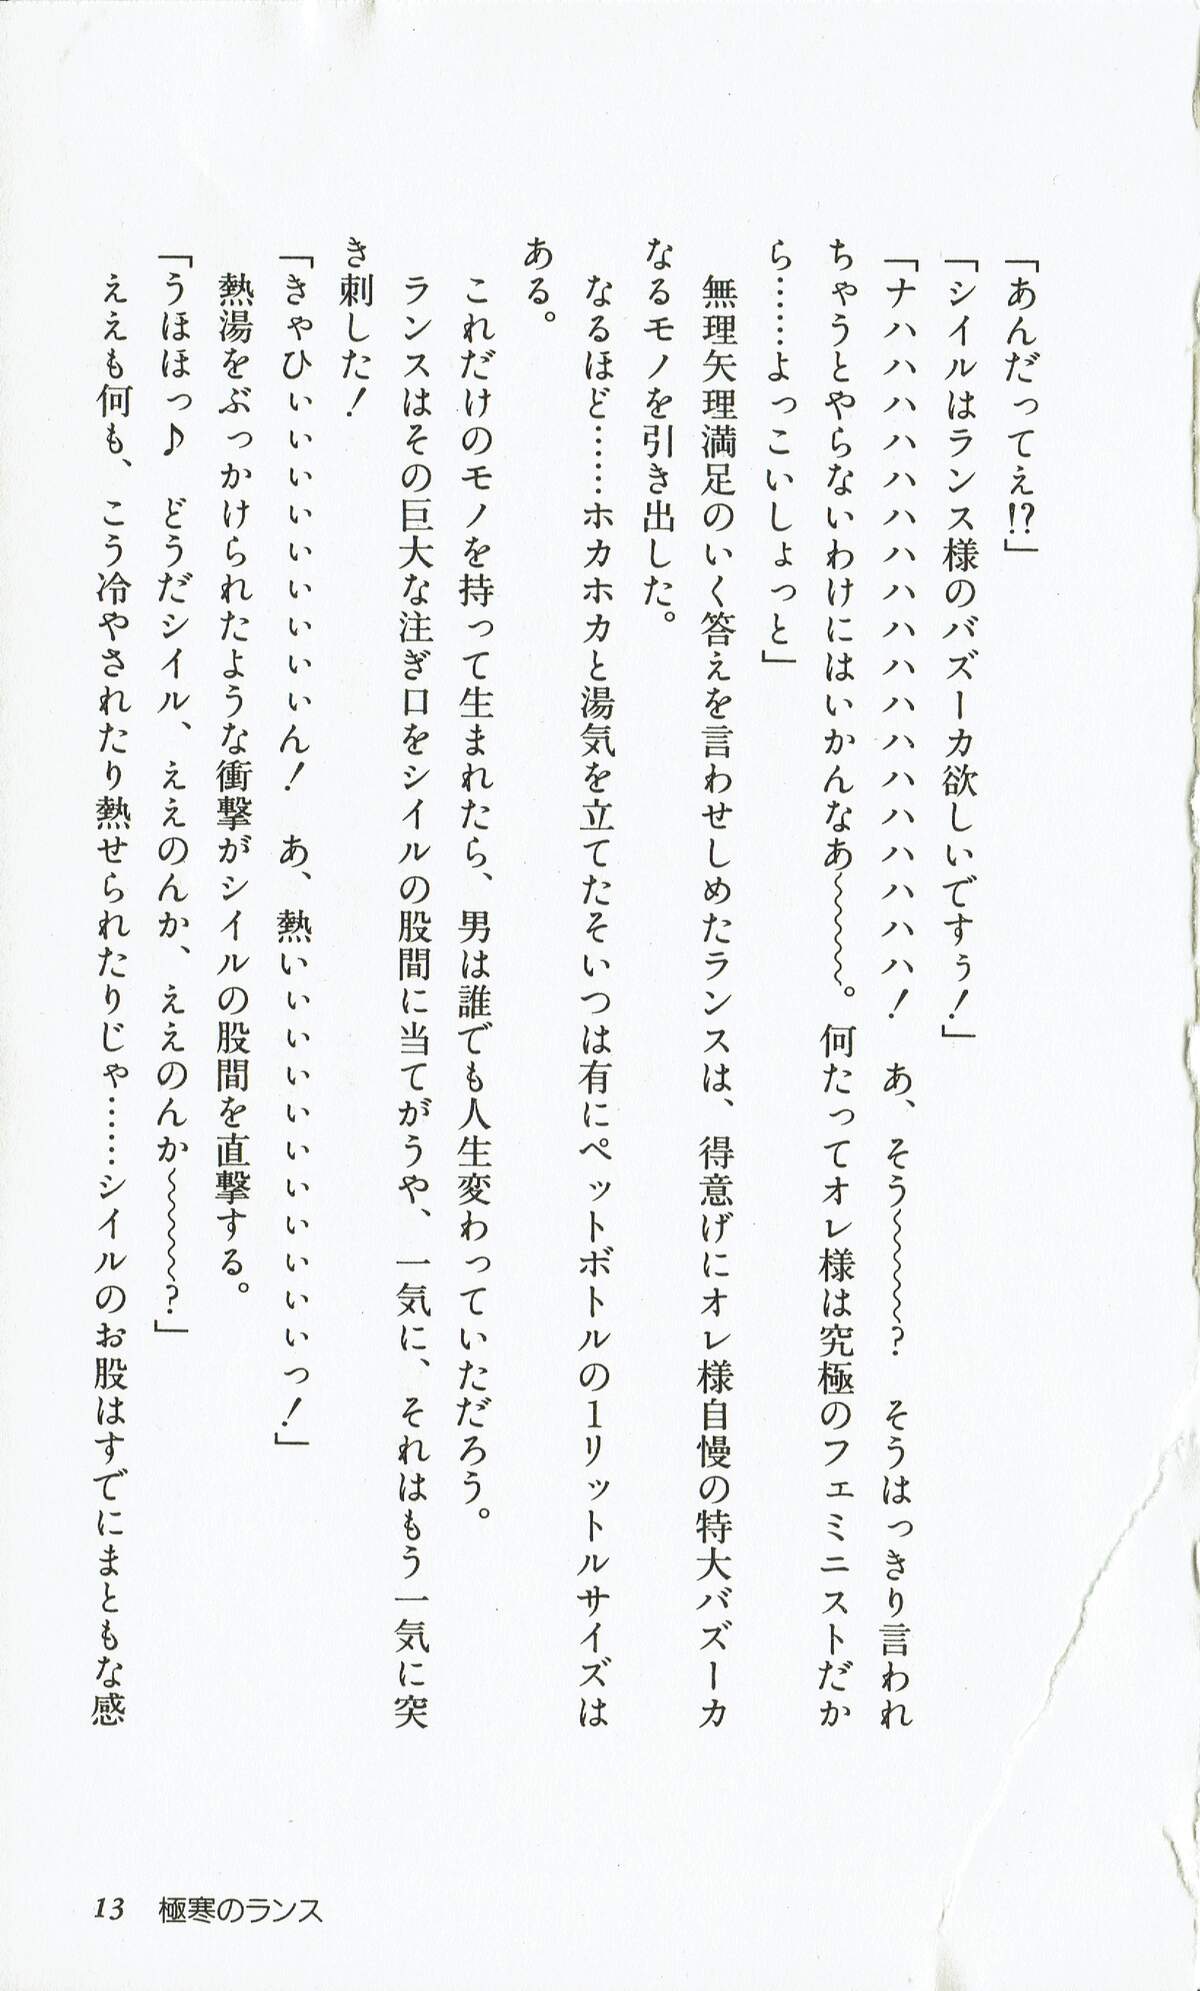 「あんだってぇ!?」
「シイルはランス様のバズーカ欲しいですぅ！」
「ナハハハハハハハハハハハハハハハハハハ！　あ、そう～～～？　そうはっきり言われ
ちゃうとやらないわけにはいかんなあ～～～。何たってオレ様は究極のフェミニストだか
ら……よっこいしょっと」
　無理矢理満足のいく答えを言わせしめたランスは、得意げにオレ様自慢の特大バズーカ
なるモノを引き出した。
　なるほど……ホカホカと湯気を立てたそいつは有にペットボトルの１リットルサイズは
ある。
　これだけのモノを持って生まれたら、男は誰でも人生変わっていただろう。
　ランスはその巨大な注ぎ口をシイルの股間に当てがうや、一気に、それはもう一気に突
き刺した！
「きゃひぃぃぃぃぃぃぃぃぃん！　あ、熱いぃぃぃぃぃぃぃぃぃぃっ！」
　熱湯をぶっかけられたような衝撃がシイルの股間を直撃する。
「うほほっ♪　どうだシイル、ええのんか、ええのんか～～～？」
　ええも何も、こう冷やされたり熱せられたりじゃ……シイルのお股はすでにまともな感
13　極寒のランス